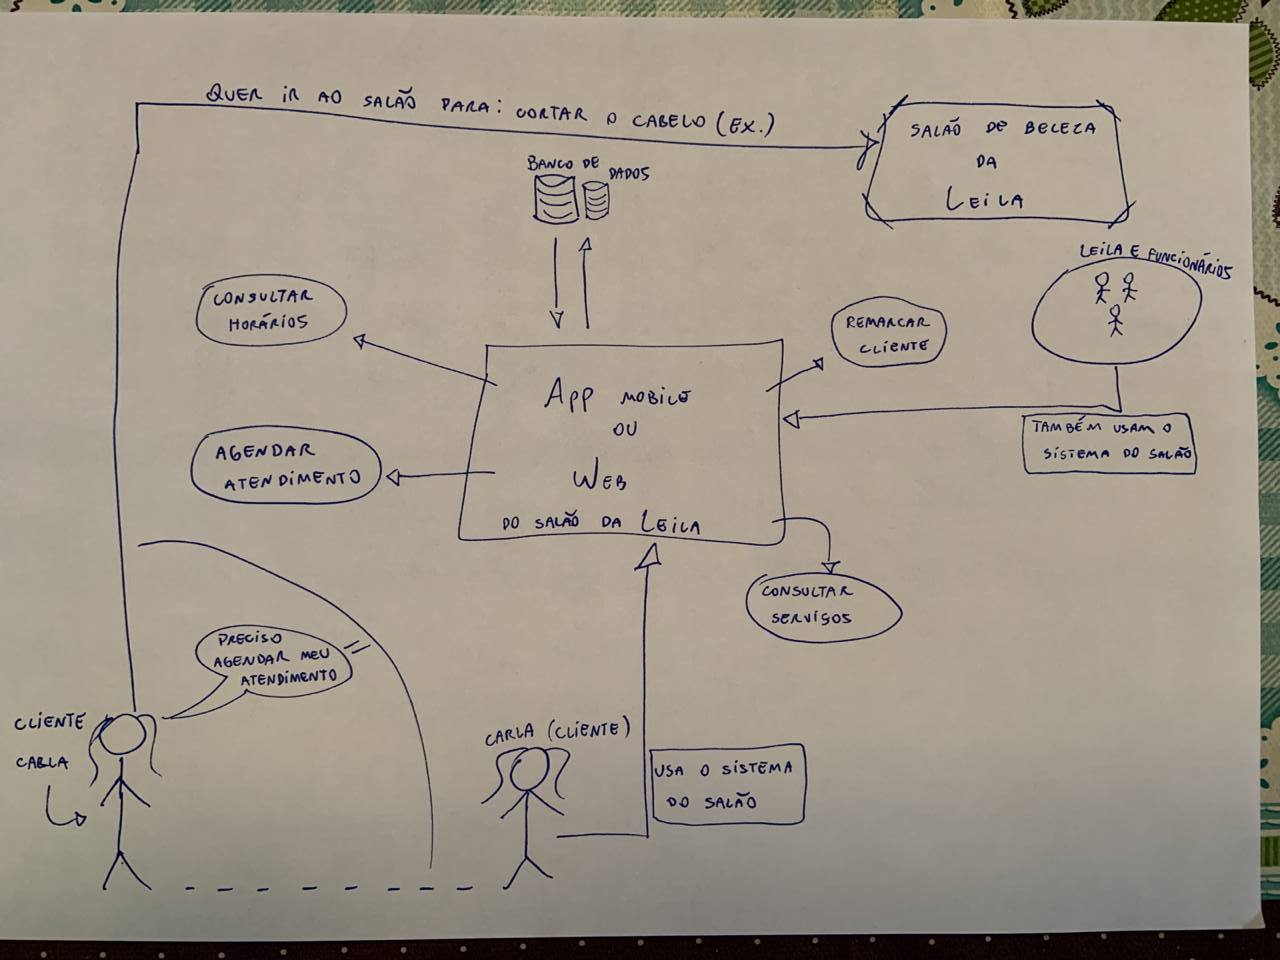 QUER IR AO SALÃO PARA: CORTAR O CABELO (EX.)
SALÃO DE BELEZA
DA
LEILA
BANCO DE
DADOS
LEILA E FUNCIONÁRIOS
CONSULTAR
HORÁRIOS
REMARCAR
CLIENTE
APP MOBILE
OU
WEB
DO SALÃO DA LEILA
TAMBÉM USAM O
SISTEMA DO SALÃO
AGENDAR
ATENDIMENTO
CONSULTAR
SERVIÇOS
PRECISO
AGENDAR MEU
ATENDIMENTO
CLIENTE
CARLA
CARLA (CLIENTE)
USA O SISTEMA
DO SALÃO